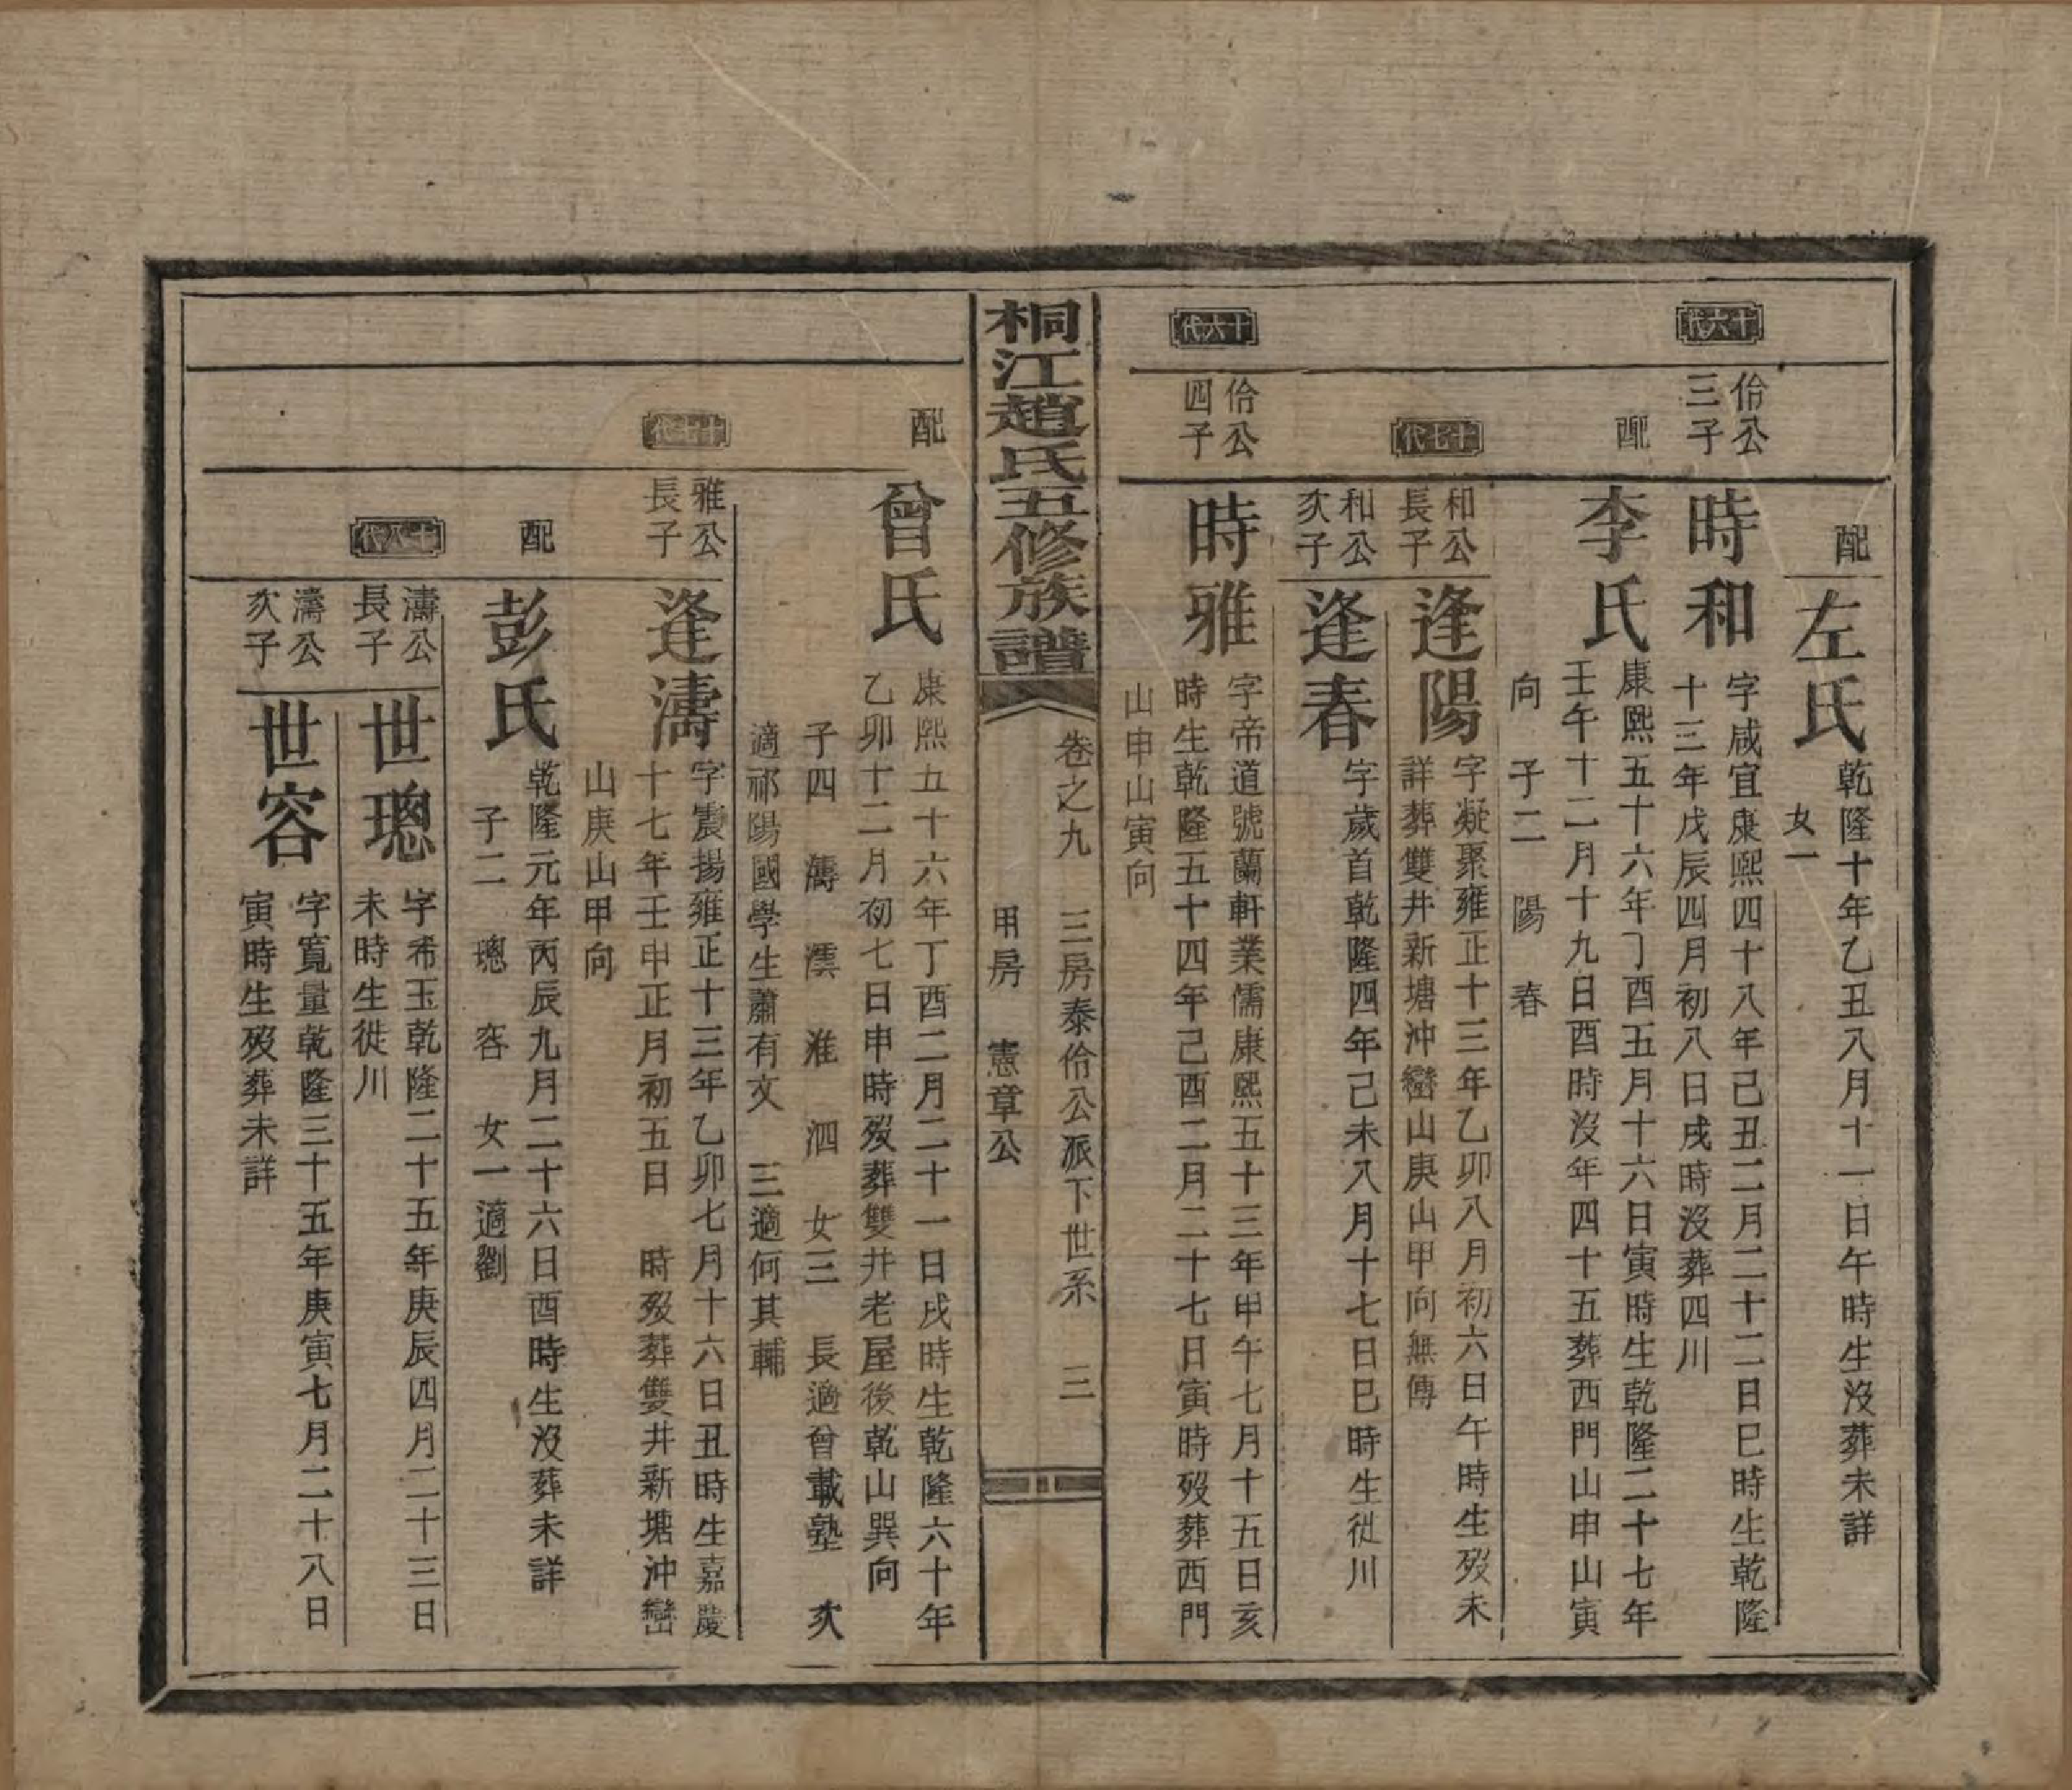 配
左氏
乾隆十年乙丑八月十一日午時生沒葬未詳
女一
十六代
佁公
三子
時和
字咸宜康熙四十八年己丑二月二十二日巳時生乾隆
十三年戊辰四月初八日戌時沒葬四川
配
李氏
康熙五十六年丁酉五月十六日寅時生乾隆二十七年
壬午十二月十九日酉時沒年四十五葬西門山申山寅
向 子二 陽 春
十七代
和公
長子
逢陽
字凝聚雍正十三年乙卯八月初六日午時生歿未
詳葬雙井新塘沖巒山庚山甲向無傳
和公
次子
逢春
字歲首乾隆四年己未八月十七日巳時生徙川
十六代
佁公
四子
時雅
字帝道號蘭軒業儒康熙五十三年甲午七月十五日亥
時生乾隆五十四年己酉二月二十七日寅時歿葬西門
山申山寅向
桐江趙氏五修族譜
卷之九 三房泰佁公派下世系 三
甲房 憲章公
配
曾氏
康熙五十六年丁酉二月二十一日戌時生乾隆六十年
乙卯十二月初七日申時歿葬雙井老屋後乾山巽向
子四 濤 澐 淮 泗 女三 長適曾載塾 次
適祁陽國學生蕭有文 三適何其輔
十七代
雅公
長子
逢濤
字震揚雍正十三年乙卯七月十六日丑時生嘉慶
十七年壬申正月初五日 時歿葬雙井新塘沖巒
山庚山甲向
配
彭氏
乾隆元年丙辰九月二十六日酉時生沒葬未詳
子二 璁 容 女一適劉
十八代
濤公
長子
世璁
字希玉乾隆二十五年庚辰四月二十三日
未時生徙川
濤公
次子
世容
字寬量乾隆三十五年庚寅七月二十八日
寅時生歿葬未詳